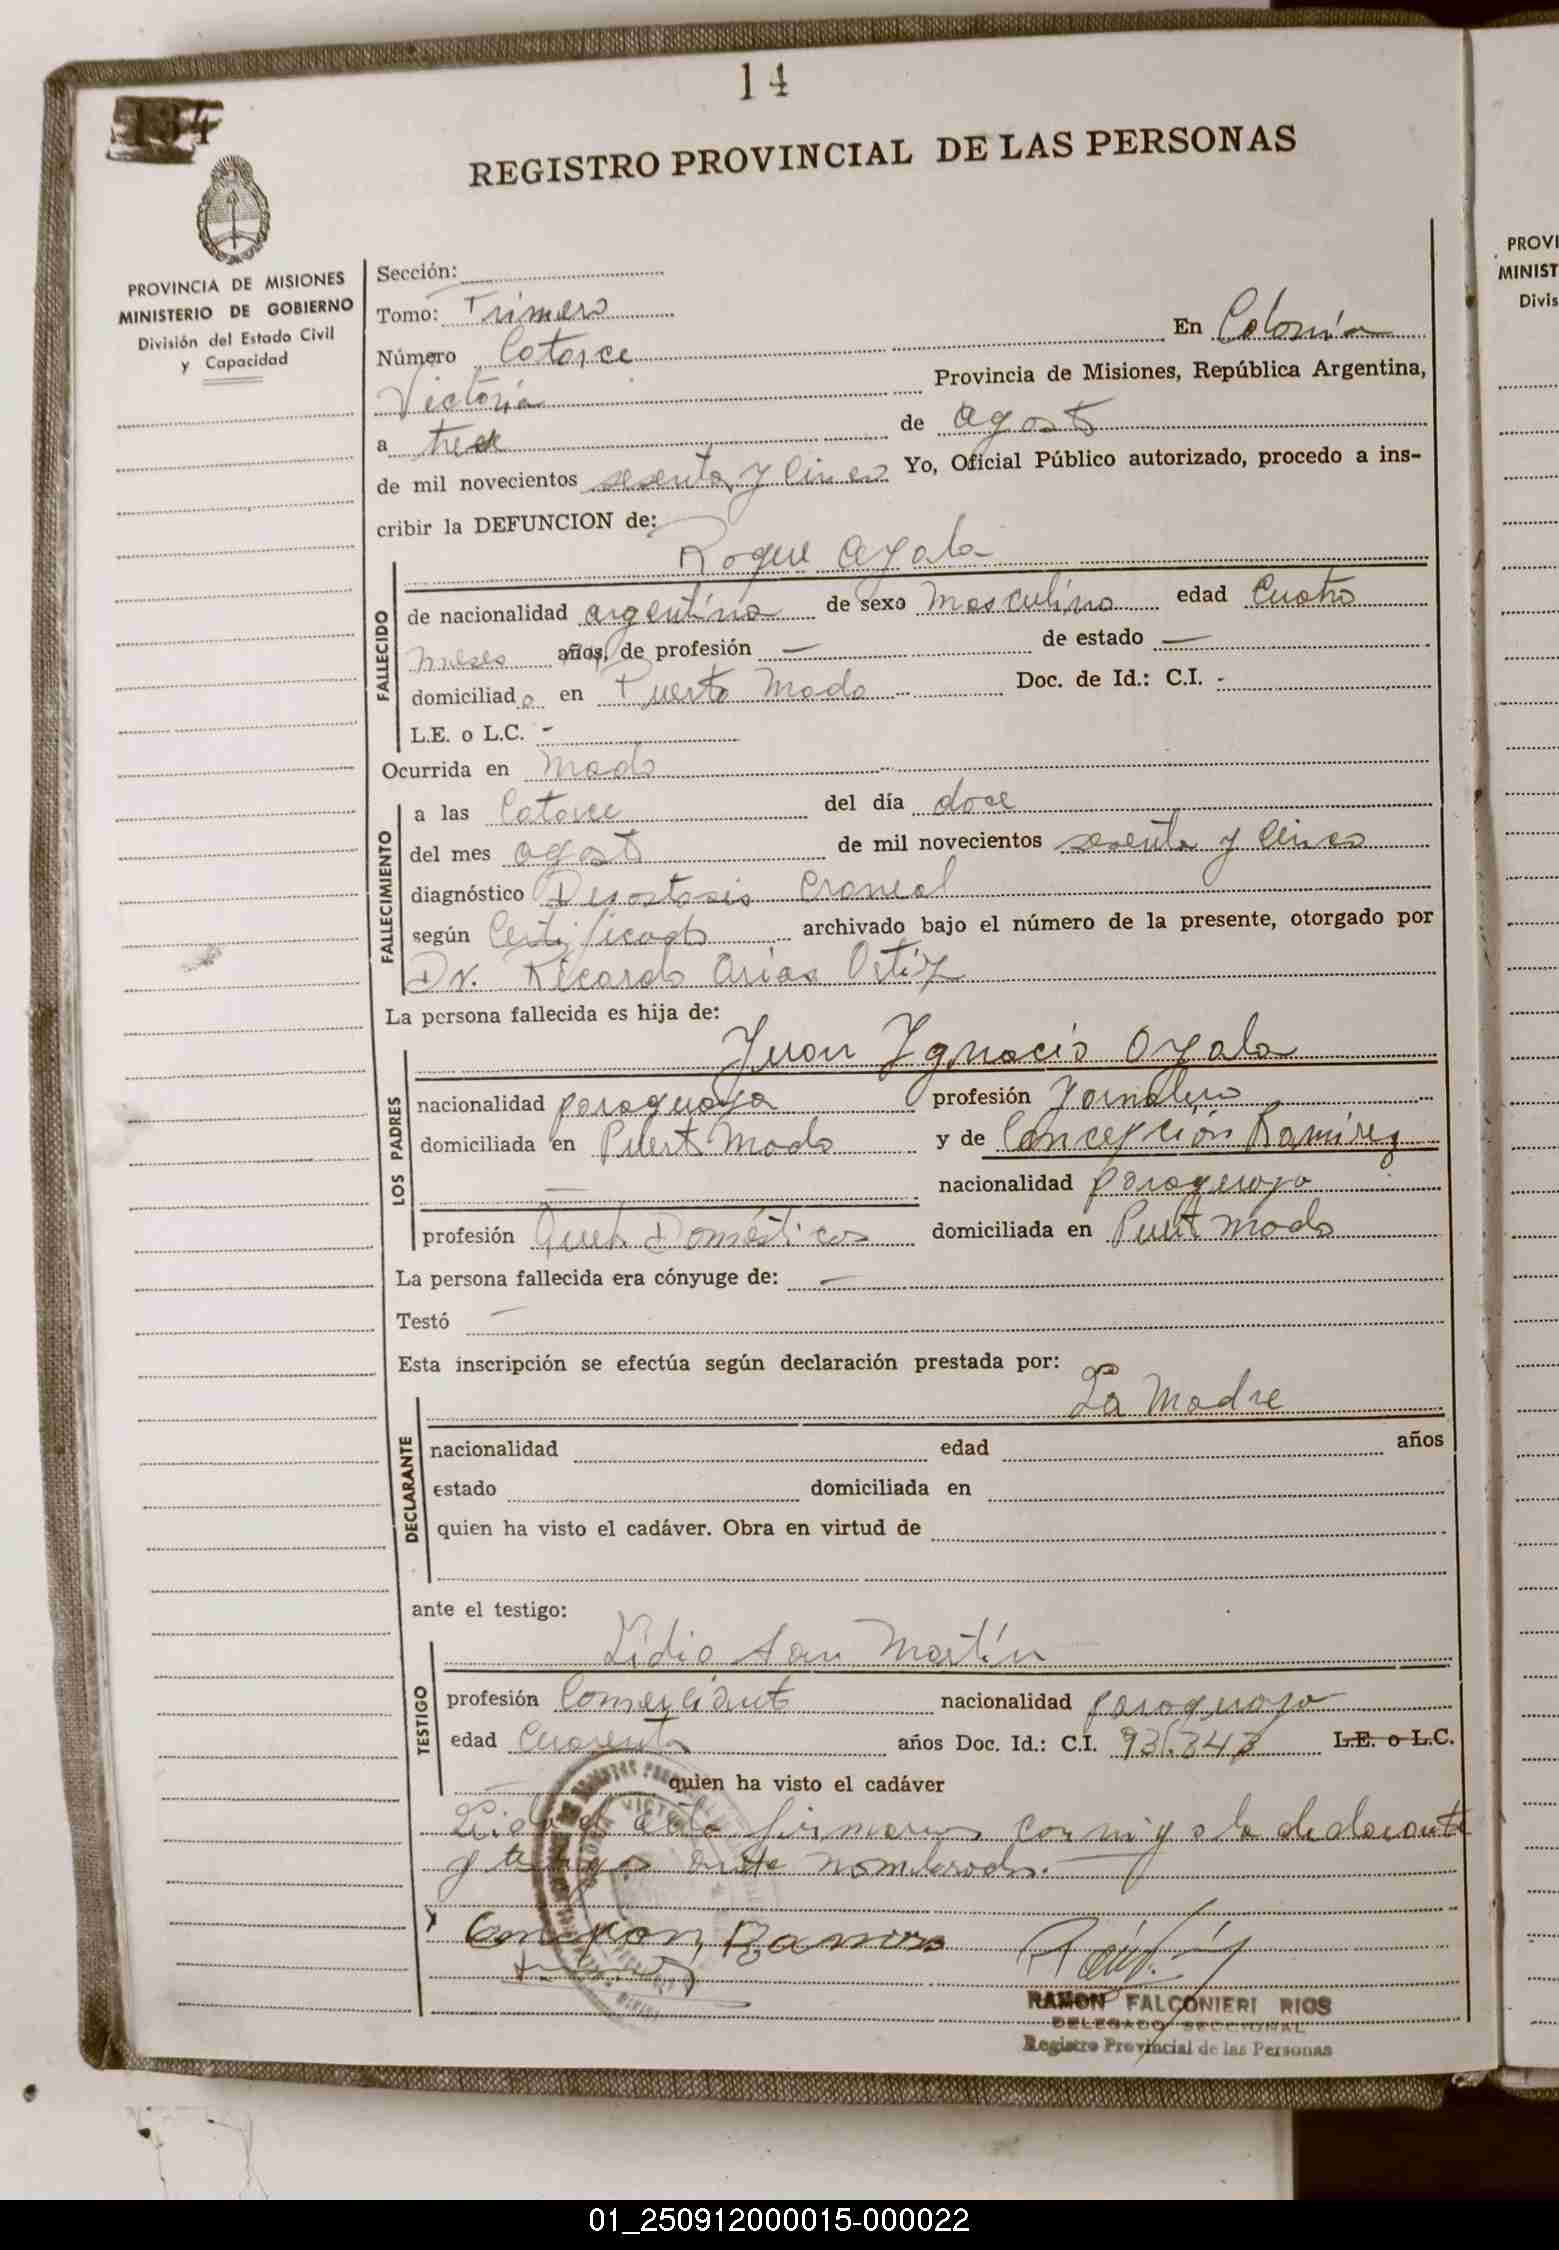 14
134
REGISTRO PROVINCIAL DE LAS PERSONAS
PROVINCIA DE MISIONES
MINISTERIO DE GOBIERNO
División del Estado Civil
y Capacidad
Sección:
Tomo: Primero
Número Catorce En Colonia
Victoria Provincia de Misiones, República Argentina,
a trece de agosto
de mil novecientos sesenta y cinco Yo, Oficial Público autorizado, procedo a ins-
cribir la DEFUNCION de:
Roque Ayala
FALLECIDO
de nacionalidad argentina de sexo masculino edad Cuatro
meses años, de profesión — de estado —
domiciliado en Puerto Mado Doc. de Id.: C.I. -
L.E. o L.C. -
Ocurrida en Mado
FALLECIMIENTO
a las Catorce del día doce
del mes agosto de mil novecientos sesenta y cinco
diagnóstico Disostosis Craneal
según Certificado archivado bajo el número de la presente, otorgado por
Dr. Ricardo Arias Ortiz
La persona fallecida es hija de:
Juan Ygnacio Ayala
LOS PADRES
nacionalidad paraguaya profesión Jornalero
domiciliada en Puerto Mado y de Concepción Ramirez
— nacionalidad paraguaya
profesión Queh Domésticos domiciliada en Puerto Mado
La persona fallecida era cónyuge de: —
Testó —
Esta inscripción se efectúa según declaración prestada por:
La Madre
DECLARANTE
nacionalidad edad años
estado domiciliada en
quien ha visto el cadáver. Obra en virtud de
ante el testigo:
Lidio San Martín
TESTIGO
profesión Comerciante nacionalidad paraguaya
edad Cuarenta años Doc. Id.: C.I. L.E. o L.C.
— quien ha visto el cadáver
Leida el acta firmaron conmigo la declarante
y testigos ante nombrado.
Concepcion Ramires
RAMON FALCONIERI RIOS
DELEGADO SECCIONAL
Registro Provincial de las Personas
PROVI
MINIST
Divis
01_250912000015-000022